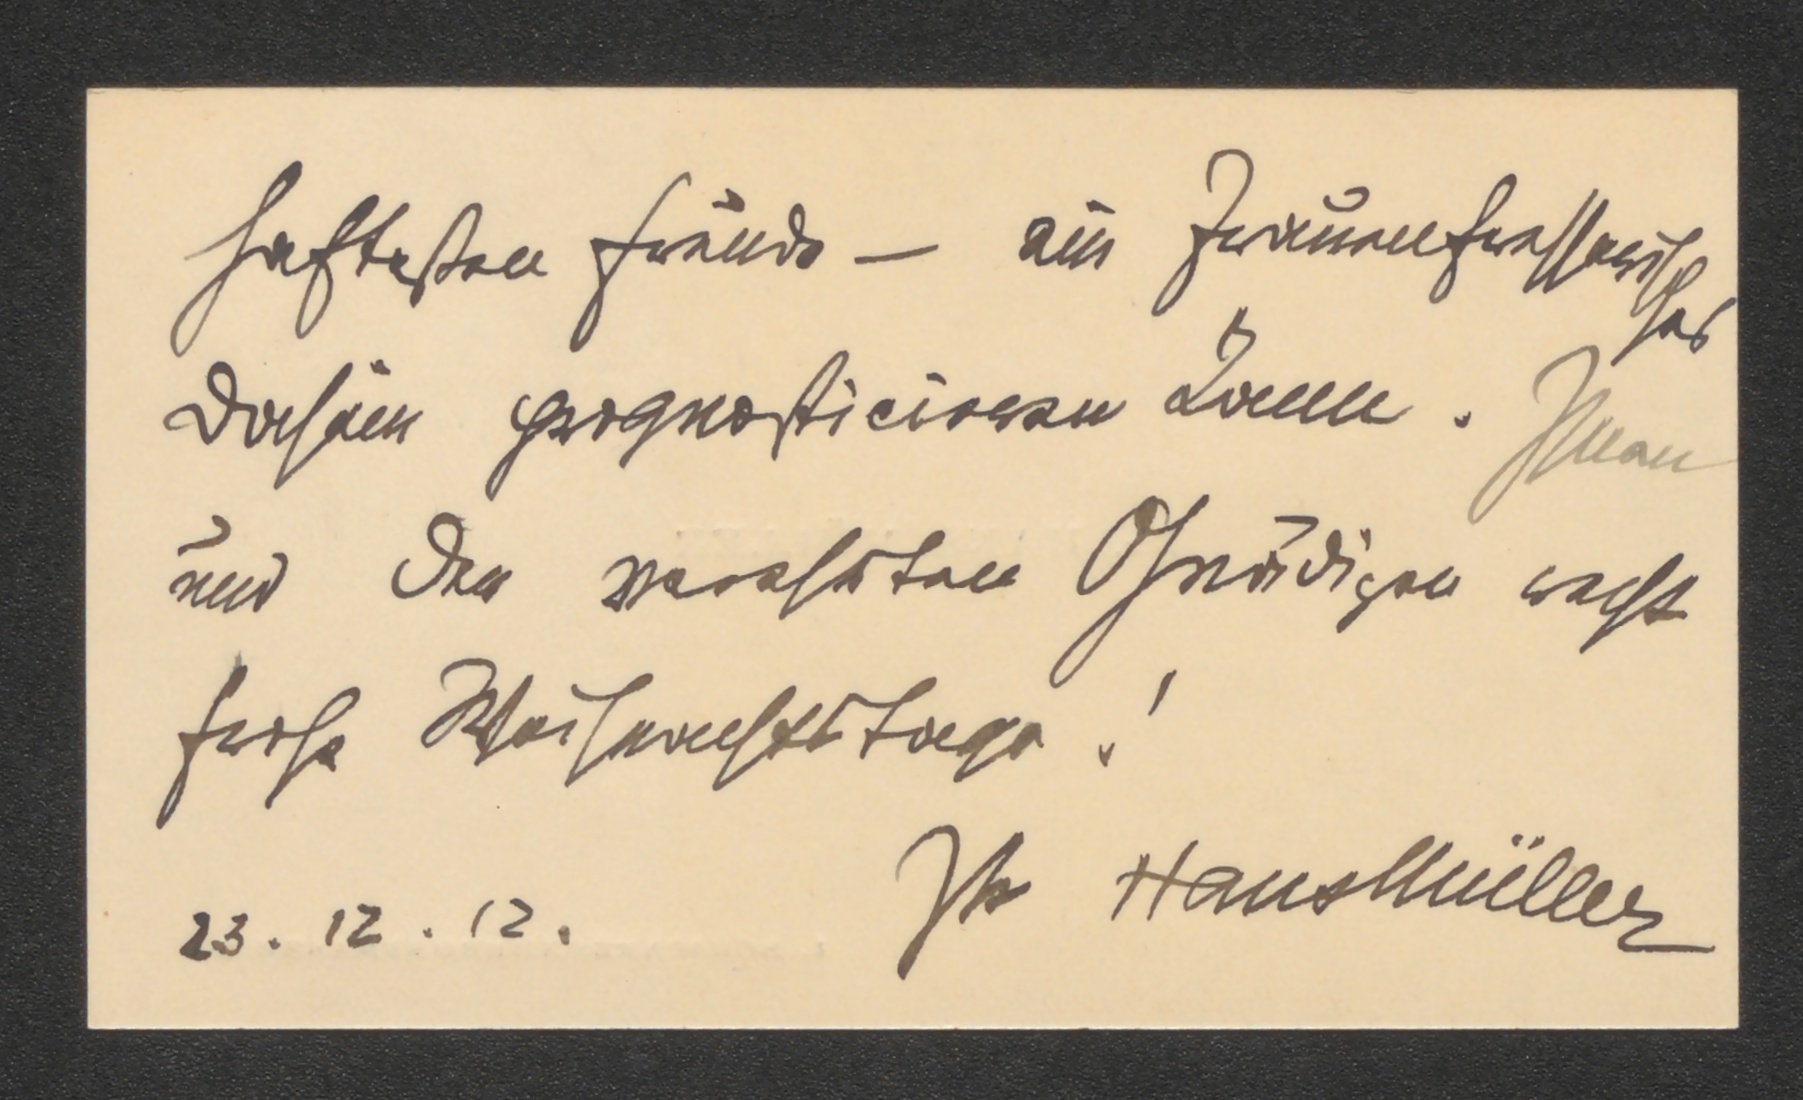 haftesten Freude — ein Frauenfresserisches
Dasein prognosticieren kann. Ihnen
und der verehrten Gnädigen recht
frohe Weihnachtstage!
Ihr Hans Müller
23. 12. 12.